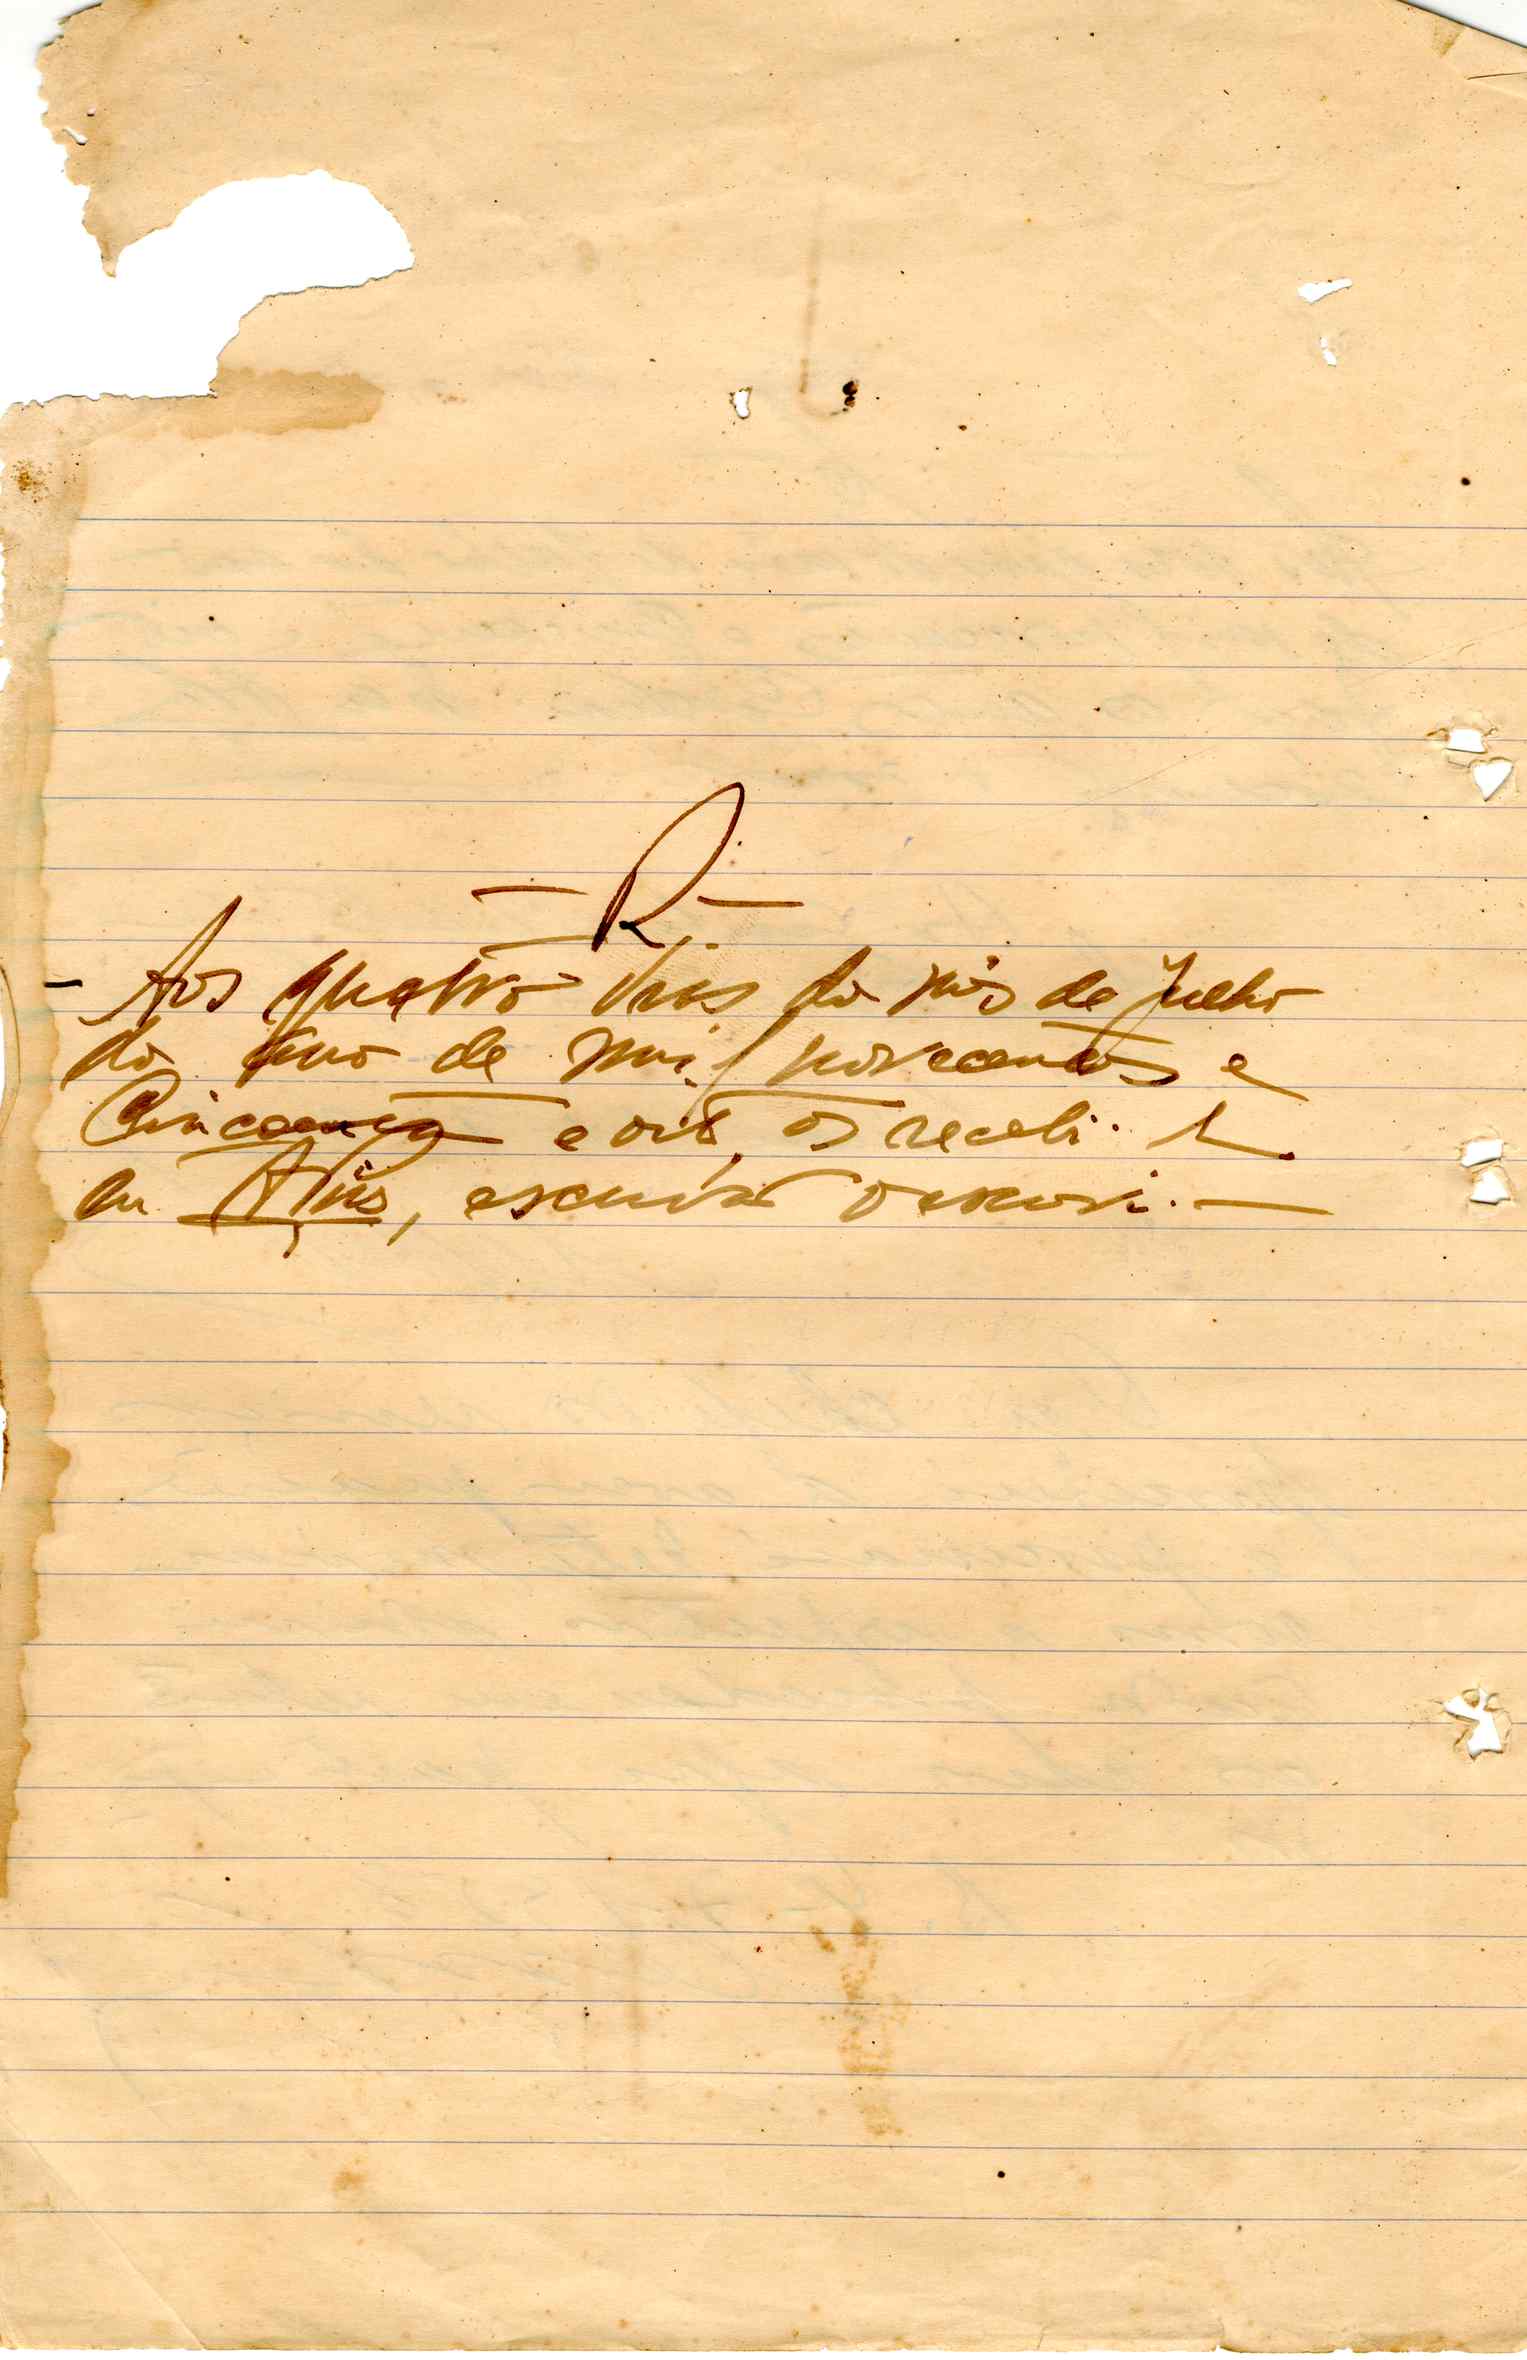 — R —
Aos quatro dias do mês de Julho
do ano de mil novecentos e
Cincoenta e oito, os recebi. E
eu, escrivão o escrevi. —